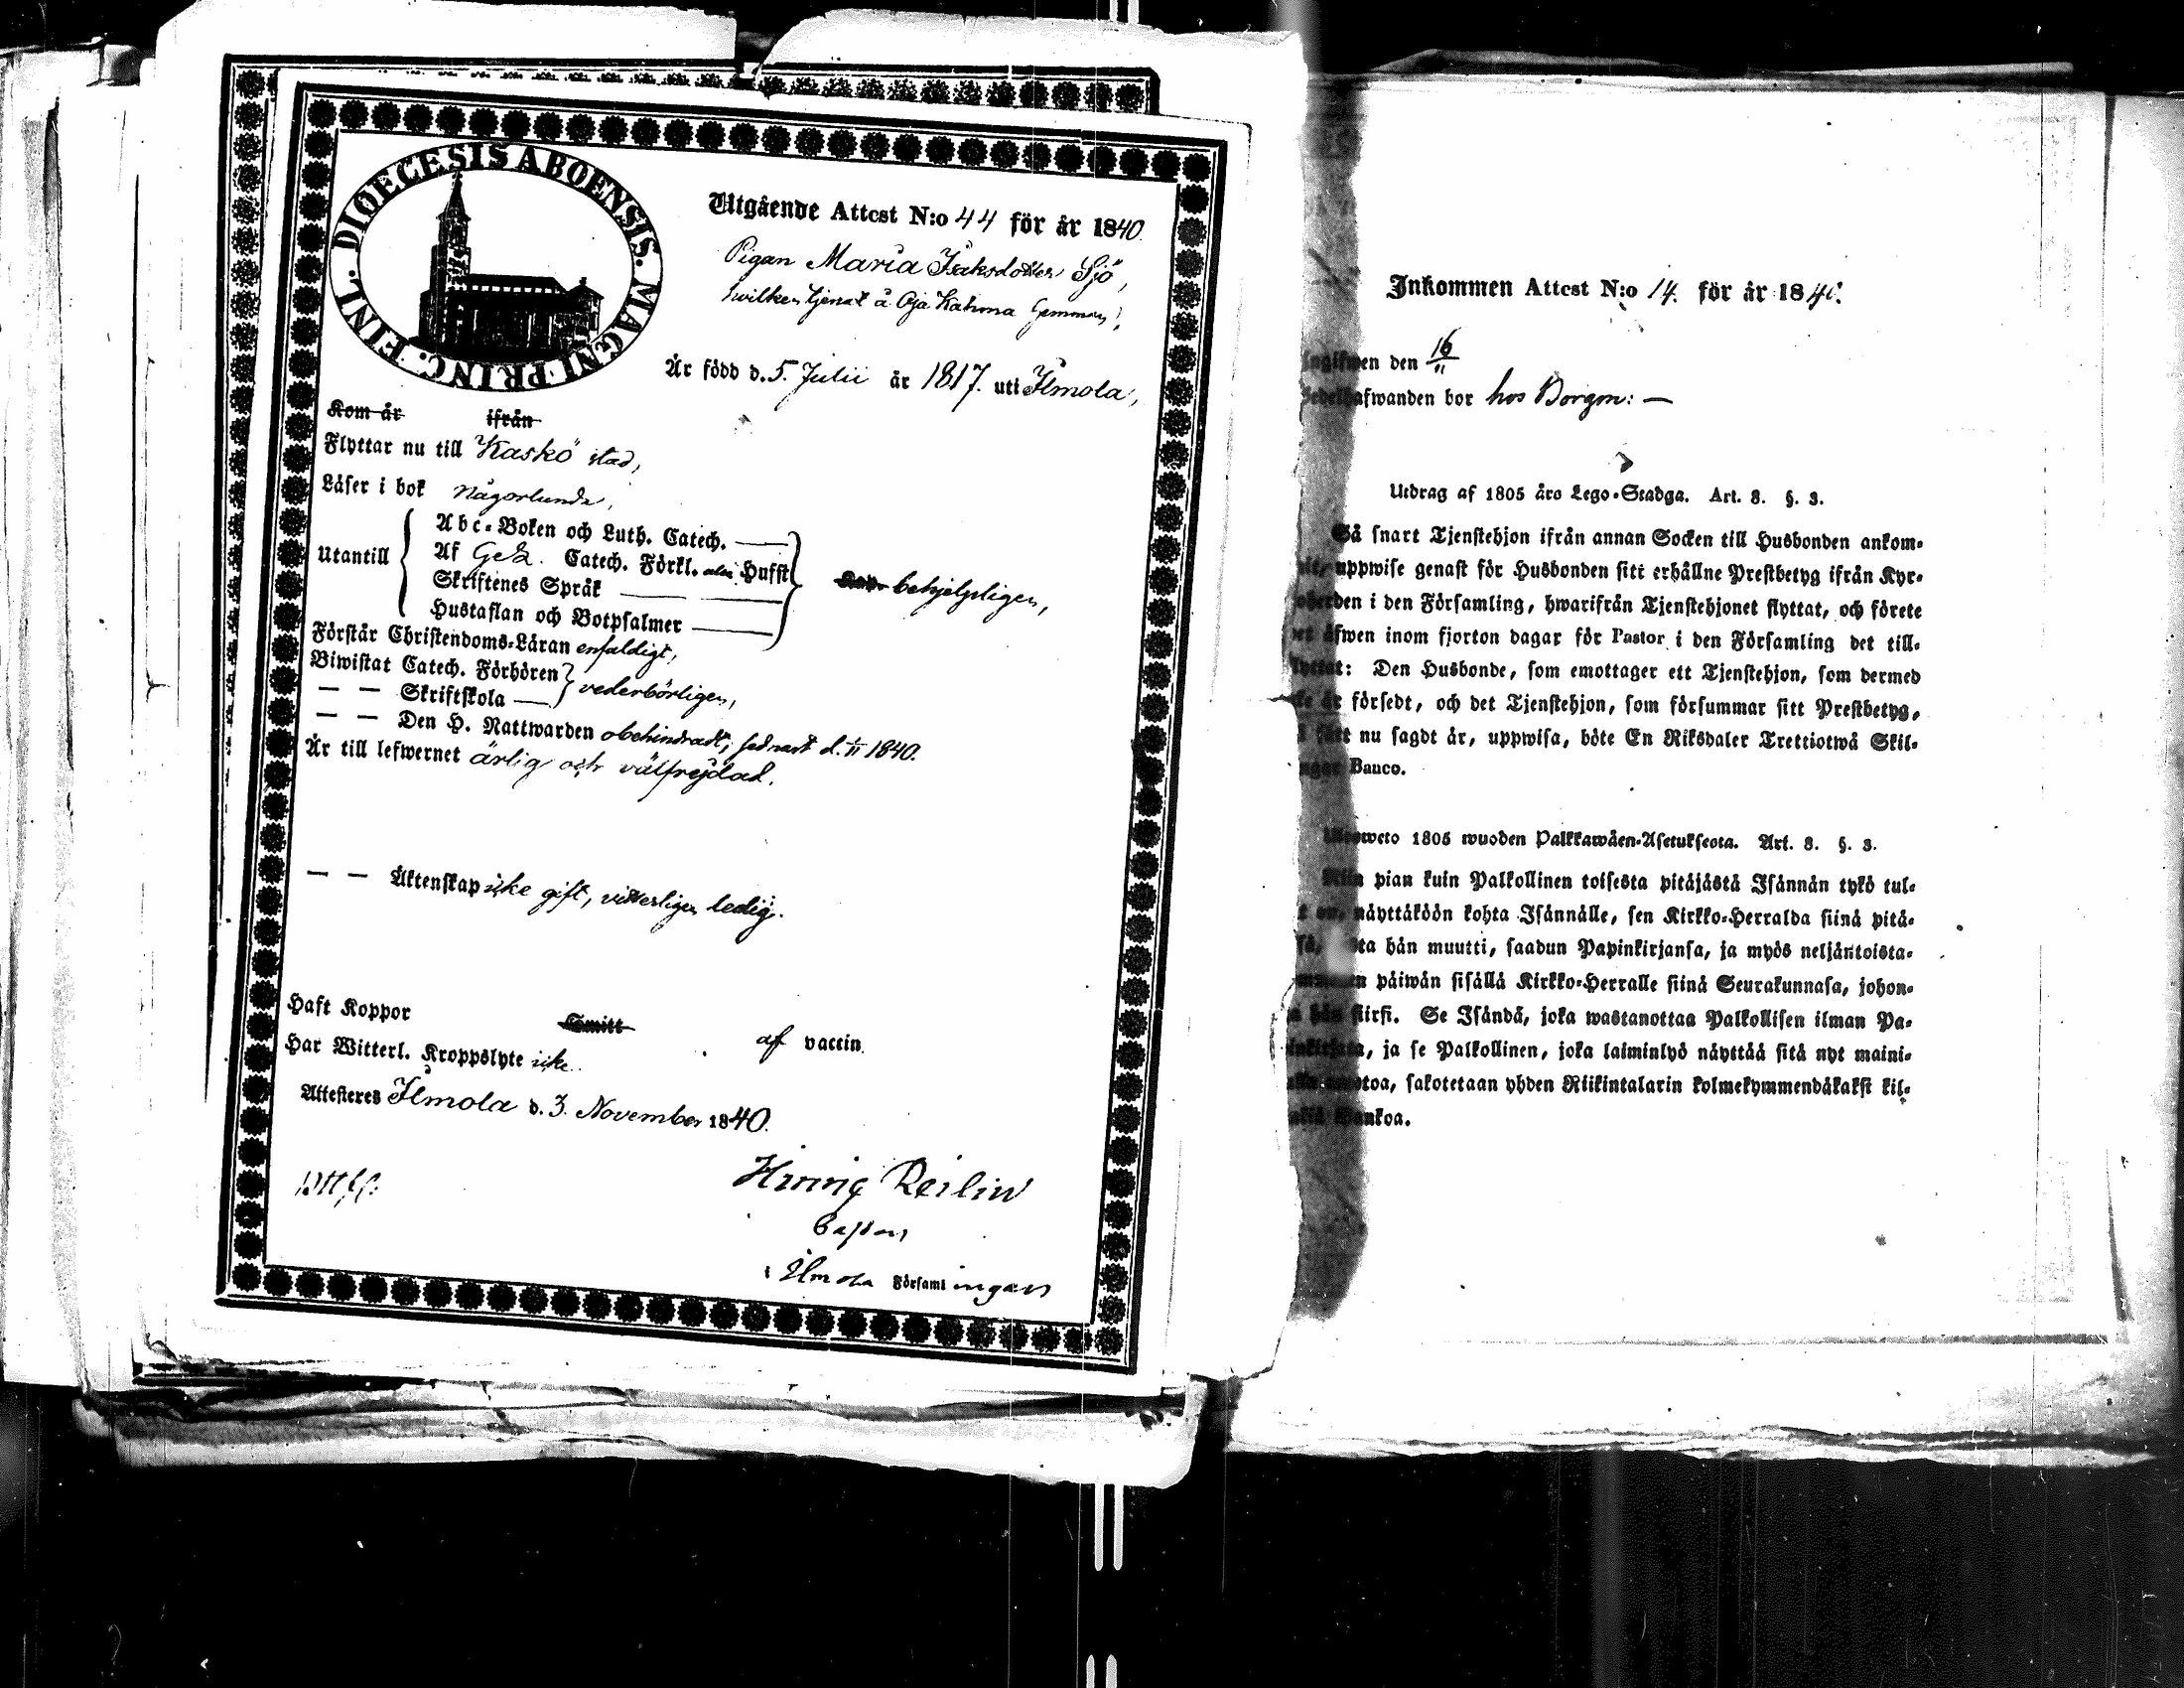 DIOECESIS ABOENSIS. MAGNI PRINC. FINL.
Utgående Attest N:o 44 för år 1840.
Pigan Maria Isaksdotter Sjö,
hvilken tjenat å Oja Kahma
Är född d. 5. Julii år 1817. uti Ilmola,
Kom år ifrån
Flyttar nu till Kaskö stad,
Läser i bok någorlunda,
Abc-Boken och Luth. Catech.
Utantill Af Catech. Förkl. Husst
behjelpligen,
Skriftenes Språk
Hustaflan och Botpsalmer
Förstår Christendoms-Läran enfaldigt,
Biwistat Catech. Förhören
vederbörligen,
— — Skriftskola
— — Den H. Nattwarden obehindradt, sednast d. 1/11 1840.
Är till lefwernet ärlig och välfrejdad.
— — Äktenskap icke gift, vitterligen ledig.
Haft Koppor Smitt af vaccin
Har Witterl. Kroppslyte icke.
Attesteras Ilmola d. 3. November 1840.
Reilin
i Ilmola Församlingen
Inkommen Attest N:o 14. för år 1840.
den 16/11
bor hos Borgm: —
Utdrag af 1805 års Lego-Stadga. Art. 8. §. 3.
Så snart Tjenstehjon ifrån annan Socken till Husbonden ankom-
uppwise genast för Husbonden sitt erhållne Prestbetyg ifrån Kyr-
den i den Församling, hwarifrån Tjenstehjonet flyttat, och förete
äfwen inom fjorton dagar för Pastor i den Församling det till-
Den Husbonde, som emottager ett Tjenstehjon, som dermed
försedt, och det Tjenstehjon, som försummar sitt Prestbetyg,
nu sagdt är, uppwisa, böte En Riksdaler Trettiotwå Skil-
Banco.
1805 wuoden Palkkawäen-Asetuksesta. Art. 8. §. 3.
Niin pian kuin Palkollinen toisesta pitäjästä Isännän tykö tul-
näyttäköön kohta Isännälle, sen Kirkko-Herralda siinä pitä-
hän muutti, saadun Papinkirjansa, ja myös neljäntoista-
päiwän sisällä Kirkko-Herralle siinä Seurakunnasa, johon-
hän siirsi. Se Isändä, joka wastanottaa Palkollisen ilman Pa-
ja se Palkollinen, joka laiminlyö näyttää sitä nyt maini-
sakotetaan yhden Riikintalarin kolmekymmendäkaksi kil-
Bankoa.